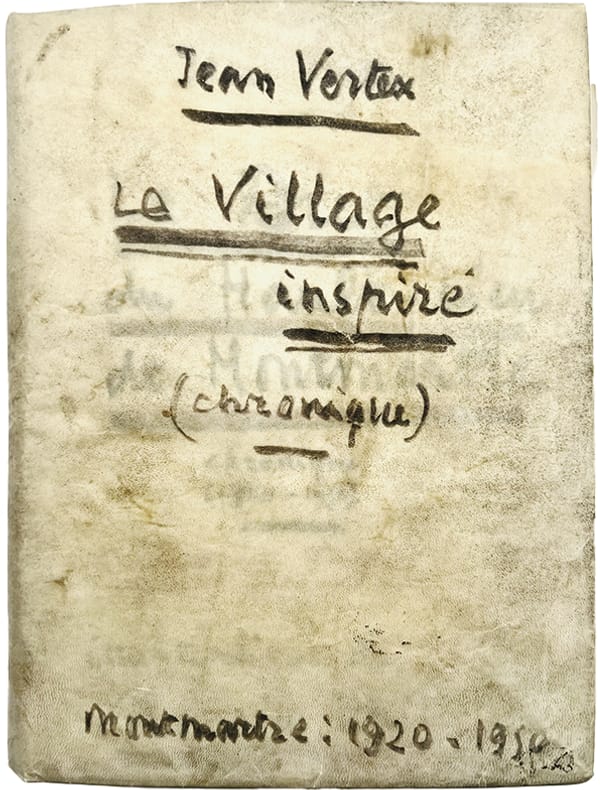 Jean Vertex
Le Village
inspiré
(chronique)
Montmartre : 1920 - 1950